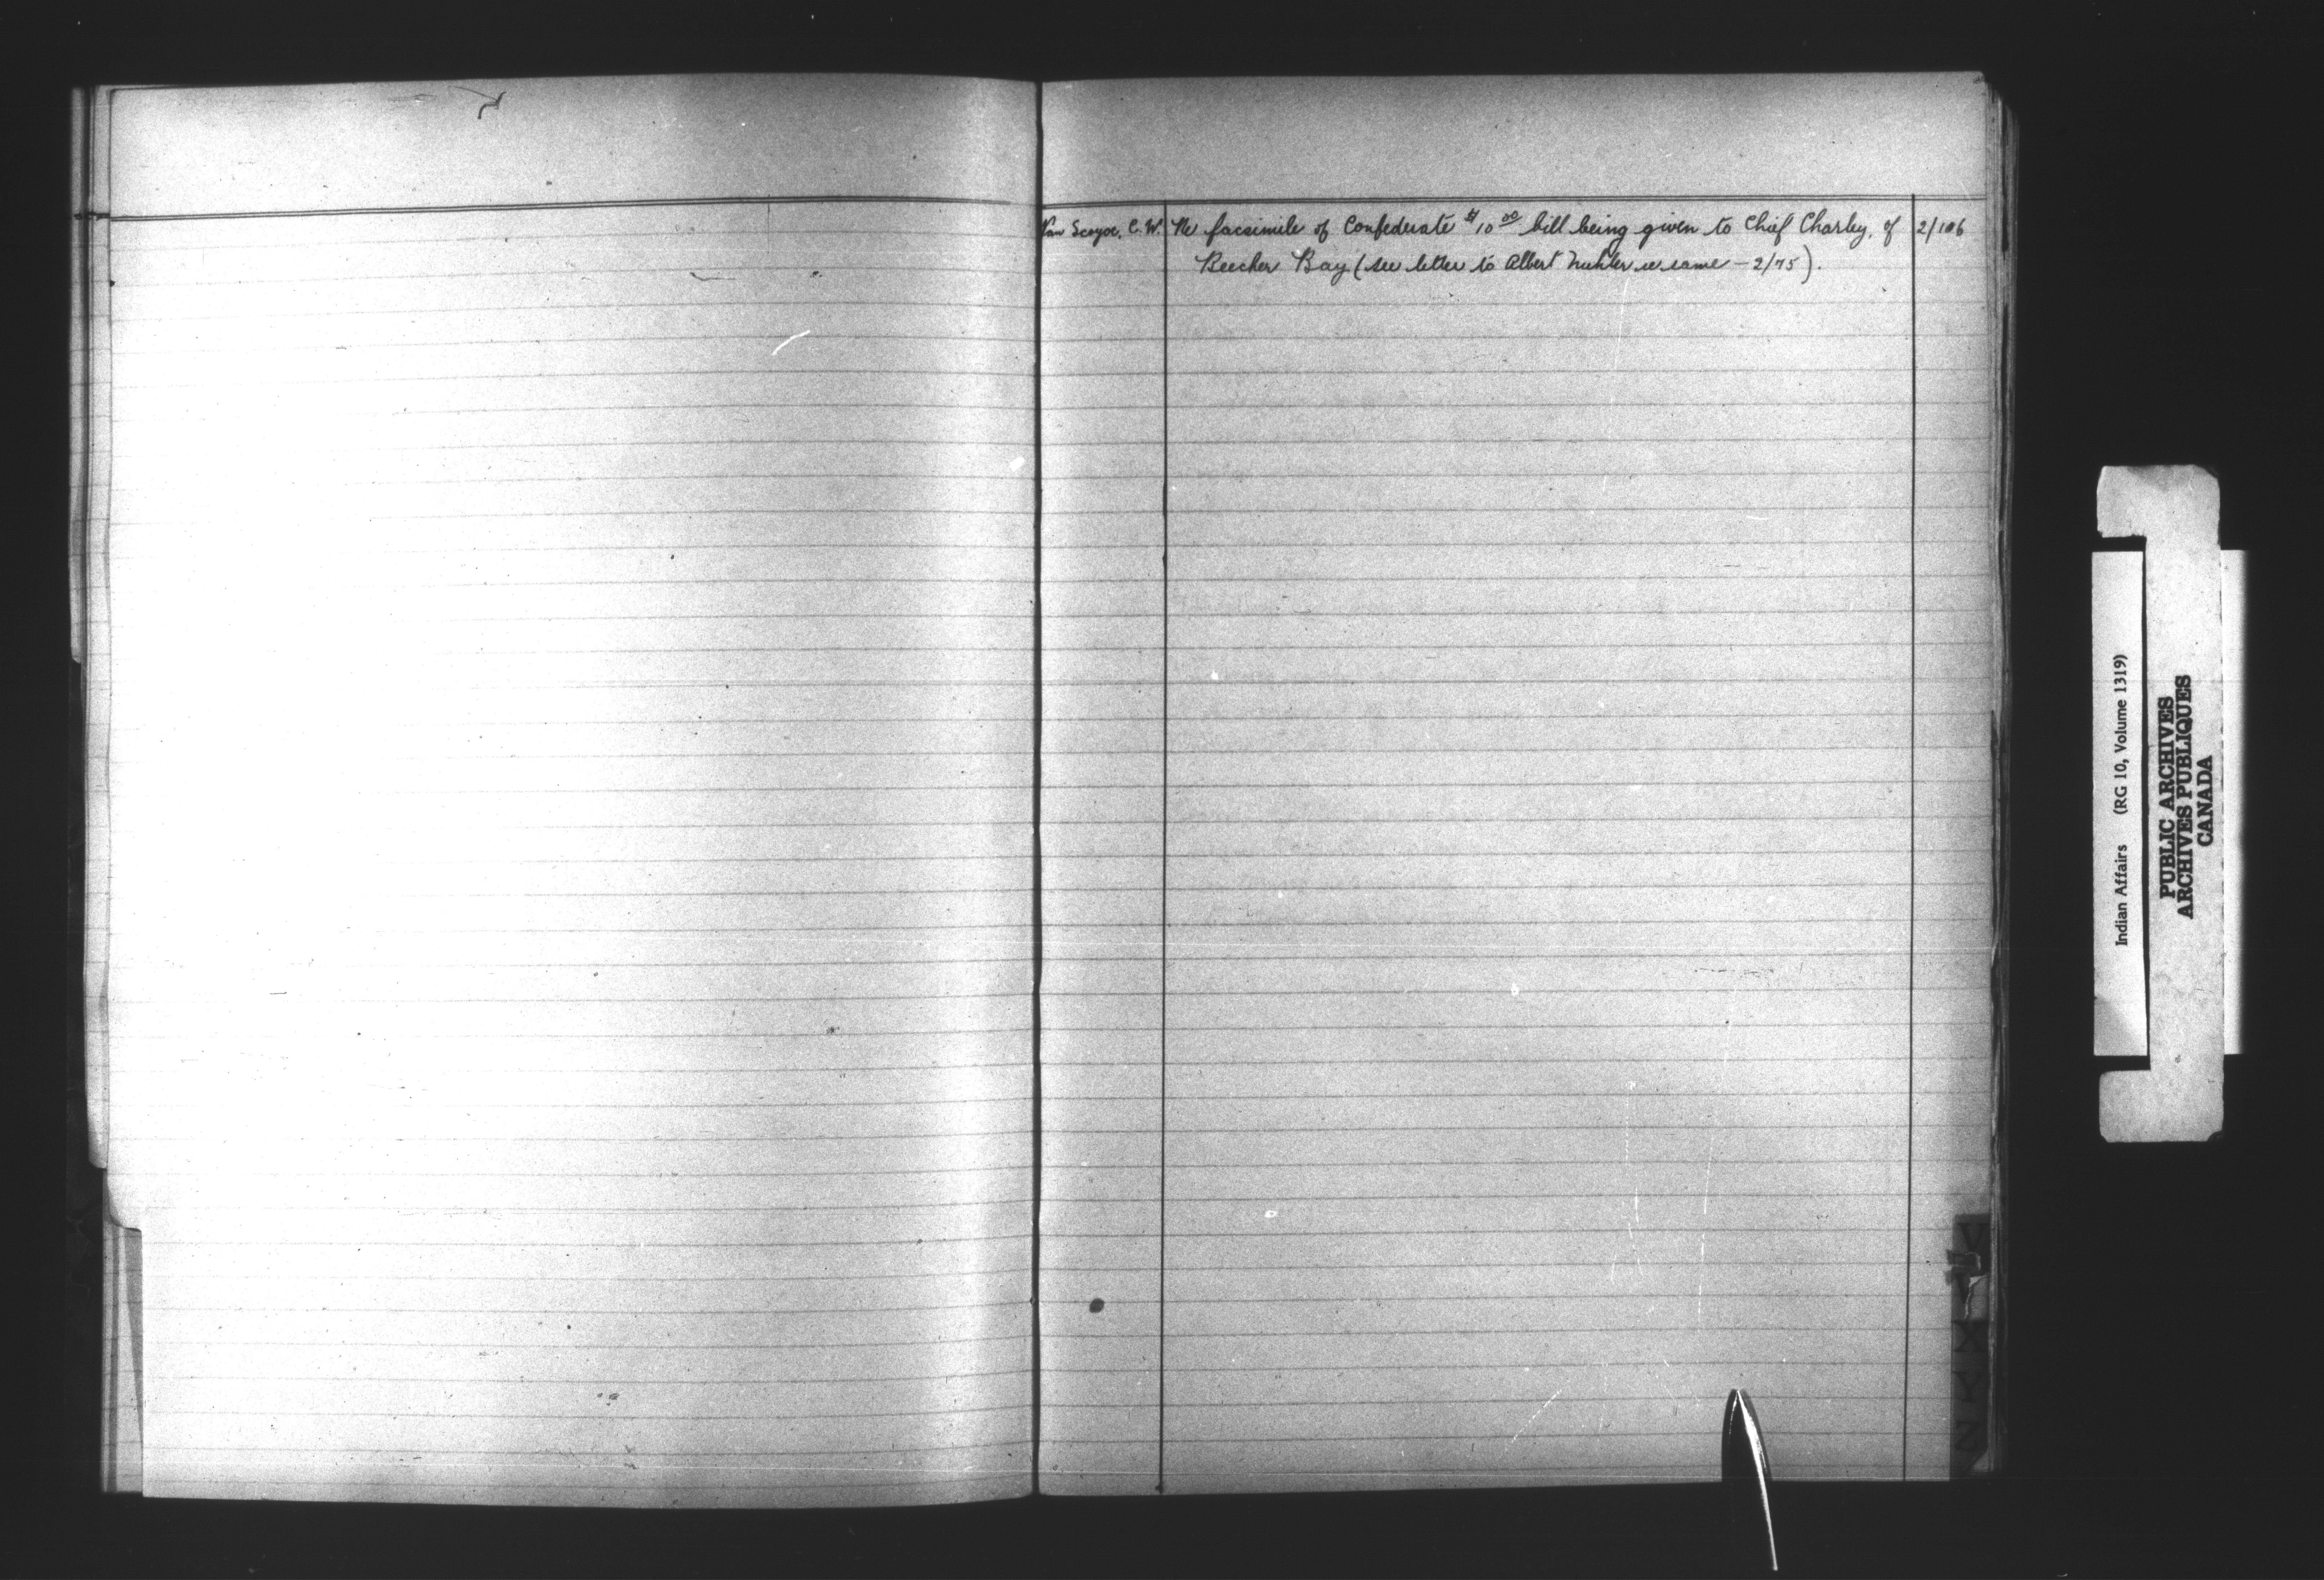 Van Scoyoc, C. W. Re facsimile of Confederate $10.00 bill being given to Chief Charley, of 2/106
Beecher Bay (see letter to Albert re same – 2/75).
V
X
Y
Z
Indian Affairs (RG 10, Volume 1319)
PUBLIC ARCHIVES
ARCHIVES PUBLIQUES
CANADA